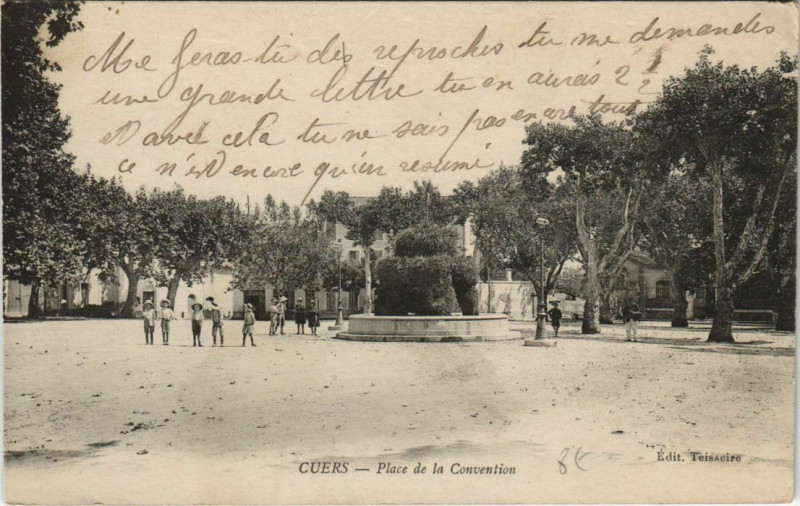 Me feras-tu des reproches tu me demandes
une grande lettre tu en auras 2 1/2
D'avec cela tu ne sais pas encore tout
ce n'est encore qu'un resumé
CUERS — Place de la Convention
8€
Édit. Teisseire